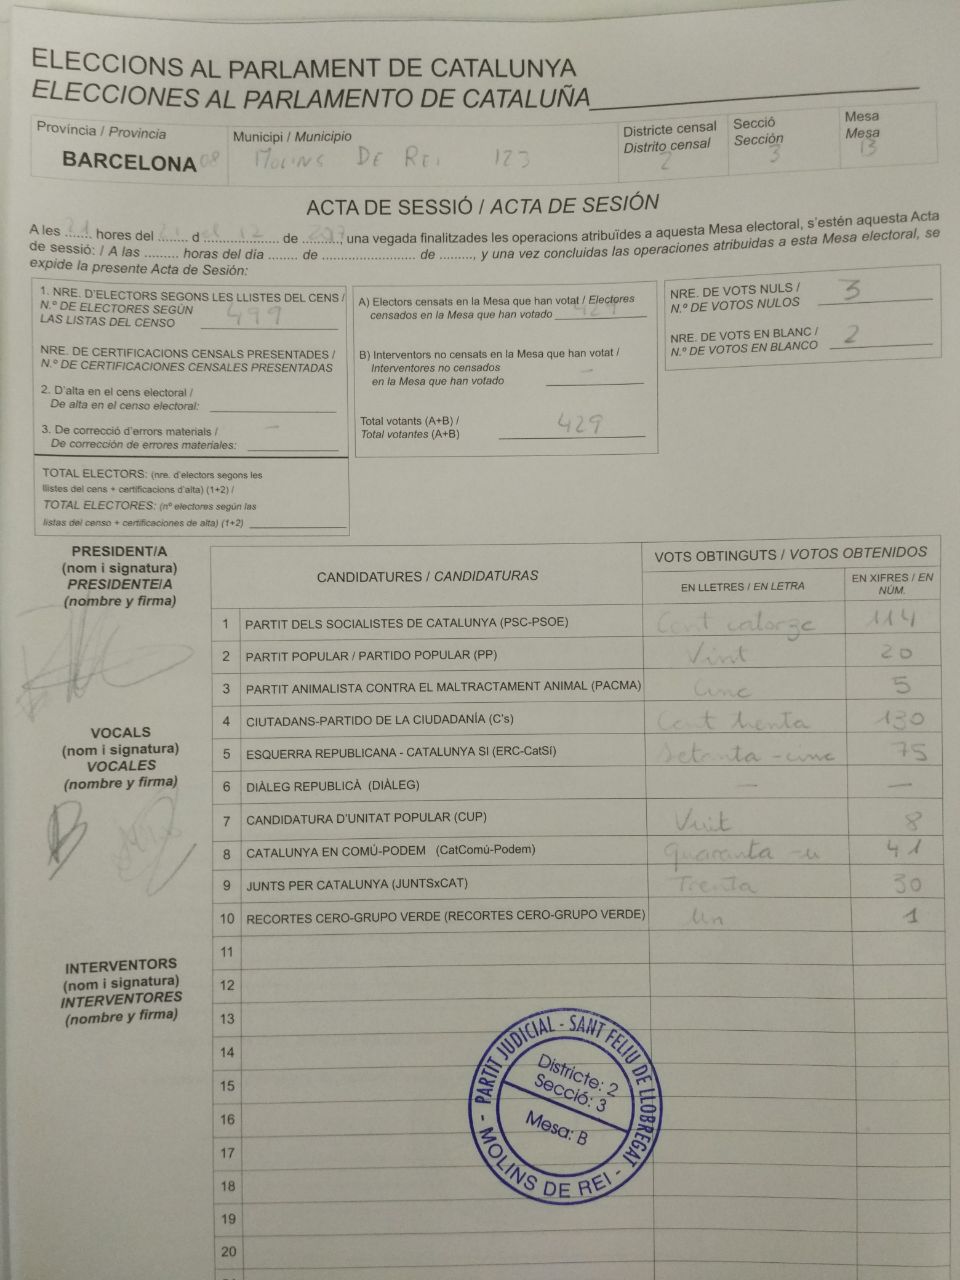 ELECCIONS AL PARLAMENT DE CATALUNYA
ELECCIONES AL PARLAMENTO DE CATALUÑA
Província / Provincia
BARCELONA 08
Municipi / Municipio
MOLINS DE REI 123
Districte censal
Distrito censal
2
Secció
Sección
3
Mesa
Mesa
B
ACTA DE SESSIÓ / ACTA DE SESIÓN
A les 21 hores del 21 d 12 de 2017, una vegada finalitzades les operacions atribuïdes a aquesta Mesa electoral, s'estén aquesta Acta
de sessió: / A las ......... horas del día ........ de ........................ de ........., y una vez concluidas las operaciones atribuidas a esta Mesa electoral, se
expide la presente Acta de Sesión:
1. NRE. D'ELECTORS SEGONS LES LLISTES DEL CENS /
N.º DE ELECTORES SEGÚN
LAS LISTAS DEL CENSO 499
NRE. DE CERTIFICACIONS CENSALS PRESENTADES /
N.º DE CERTIFICACIONES CENSALES PRESENTADAS
2. D'alta en el cens electoral /
De alta en el censo electoral:
3. De correcció d'errors materials /
De corrección de errores materiales: —
TOTAL ELECTORS: (nre. d'electors segons les
llistes del cens + certificacions d'alta) (1+2) /
TOTAL ELECTORES: (nº electores según las
listas del censo + certificaciones de alta) (1+2)
A) Electors censats en la Mesa que han votat / Electores
censados en la Mesa que han votado 429
B) Interventors no censats en la Mesa que han votat /
Interventores no censados
en la Mesa que han votado —
Total votants (A+B) /
Total votantes (A+B) 429
NRE. DE VOTS NULS /
N.º DE VOTOS NULOS 3
NRE. DE VOTS EN BLANC /
N.º DE VOTOS EN BLANCO 2
PRESIDENT/A
(nom i signatura)
PRESIDENTE/A
(nombre y firma)
VOCALS
(nom i signatura)
VOCALES
(nombre y firma)
INTERVENTORS
(nom i signatura)
INTERVENTORES
(nombre y firma)
CANDIDATURES / CANDIDATURAS
VOTS OBTINGUTS / VOTOS OBTENIDOS
EN LLETRES / EN LETRA
EN XIFRES / EN
NÚM.
1 PARTIT DELS SOCIALISTES DE CATALUNYA (PSC-PSOE) Cent catorze 114
2 PARTIT POPULAR / PARTIDO POPULAR (PP) Vint 20
3 PARTIT ANIMALISTA CONTRA EL MALTRACTAMENT ANIMAL (PACMA) Cinc 5
4 CIUTADANS-PARTIDO DE LA CIUDADANÍA (C's) Cent trenta 130
5 ESQUERRA REPUBLICANA - CATALUNYA SI (ERC-CatSí) Setanta-cinc 75
6 DIÀLEG REPUBLICÀ (DIÀLEG) — —
7 CANDIDATURA D'UNITAT POPULAR (CUP) Vuit 8
8 CATALUNYA EN COMÚ-PODEM (CatComú-Podem) Quaranta-u 41
9 JUNTS PER CATALUNYA (JUNTSxCAT) Trenta 30
10 RECORTES CERO-GRUPO VERDE (RECORTES CERO-GRUPO VERDE) Un 1
11
12
13
14
15
16
17
18
19
20
PARTIT JUDICIAL - SANT FELIU DE LLOBREGAT
Districte: 2
Secció: 3
Mesa: B
- MOLINS DE REI -